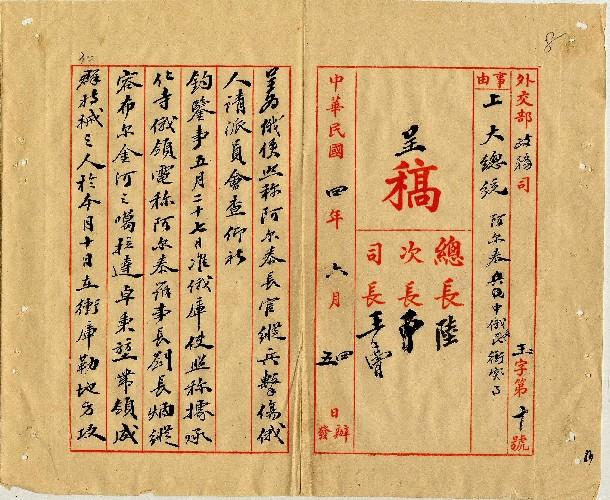 外交部政務司 玉字第十號
事由
上大總統 阿尔泰 中俄 衝突事
呈
稿
總長陸
次長
司長王
中華民國四年六月 四五 日 辦發
呈為俄使照称阿尔泰長官縱兵擊傷俄
人請派員會查仰祈
鈞鑒事五月二十七日准俄庫使照称據承
化寺俄領電称阿尔泰辦事長劉長炳縱
容布尔金河之噶拉達卓東 帶領成
群持械之人於今月十日在衝庫勒地方攻